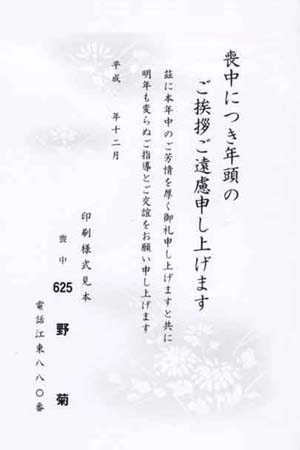 喪中につき年頭の
ご挨拶ご遠慮申し上げます
茲に本年中のご芳情を厚く御礼申し上げますと共に
明年も変らぬご指導とご交誼をお願い申し上げます
平成　年十二月
印刷様式見本
喪中
625 野菊
電話江東八八〇番